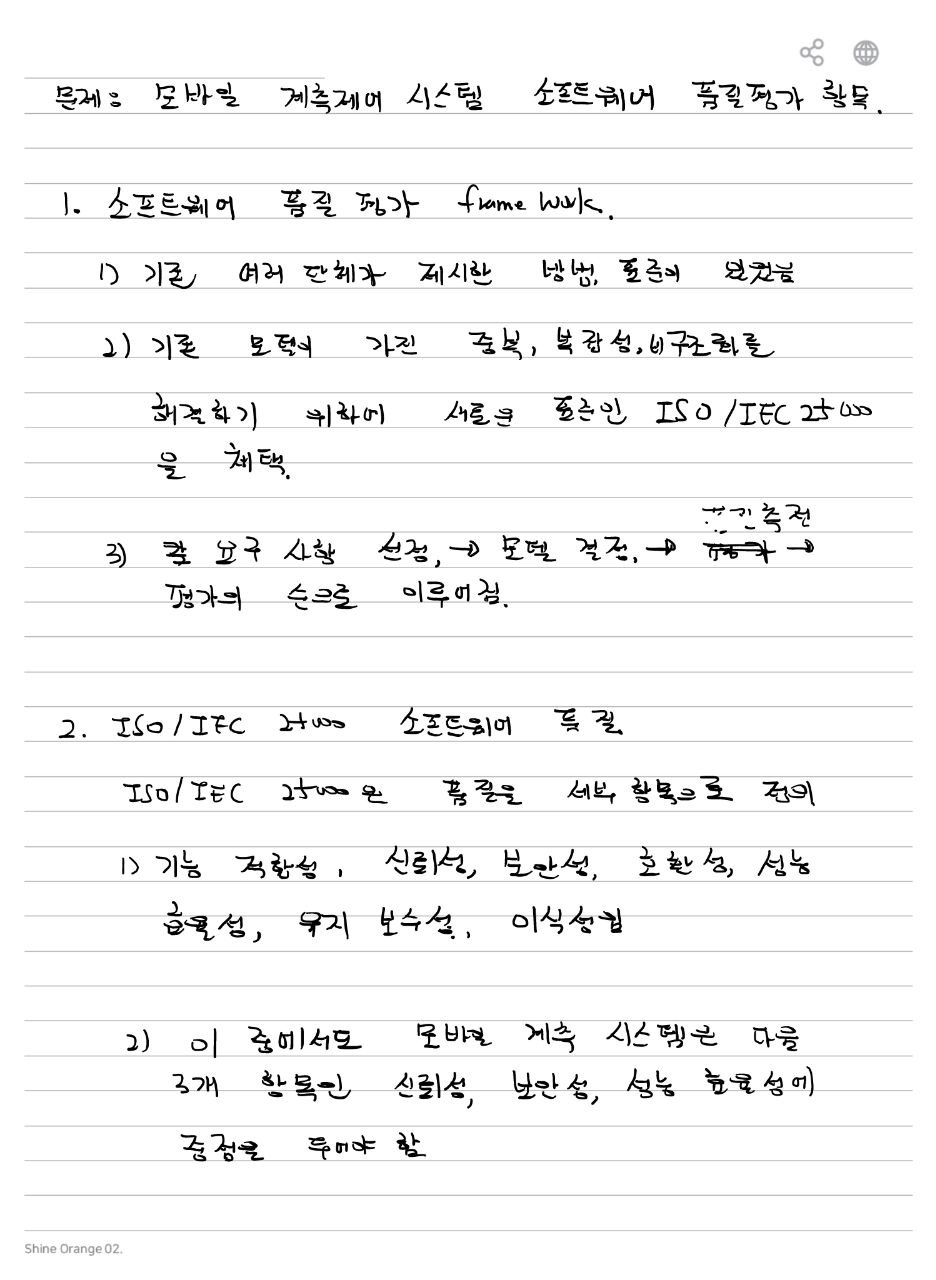 문제: 모바일 계측제어 시스템 소프트웨어 품질평가 항목.
1. 소프트웨어 품질 평가 frame work.
1) 기존 여러 단체가 제시한 방법, 표준이 있었음
2) 기존 모델이 가진 중복, 복잡성, 비구조화를
해결하기 위하여 새로운 표준인 ISO/IEC 25000
을 채택.
측전
3) 각 요구 사항 선정, → 모델 결정, → →
평가의 순으로 이루어짐.
2. ISO/IEC 25000 소프트웨어 품질
ISO/IEC 25000은 품질을 세부 항목으로 정의
1) 기능 적합성, 신뢰성, 보안성, 호환성, 성능
효율성, 유지 보수성, 이식성임
2) 이 중에서도 모바일 계측 시스템은 다음
3개 항목인 신뢰성, 보안성, 성능 효율성에
중점을 두어야 함
Shine Orange 02.